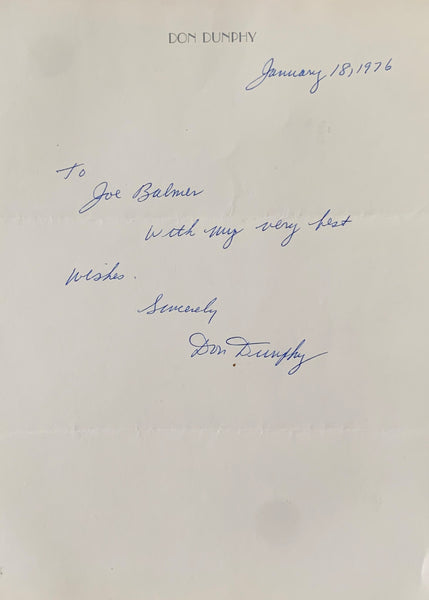 DON DUNPHY
January 18, 1976
To
Joe Balmer
With my very best
wishes.
Sincerely
Don Dunphy